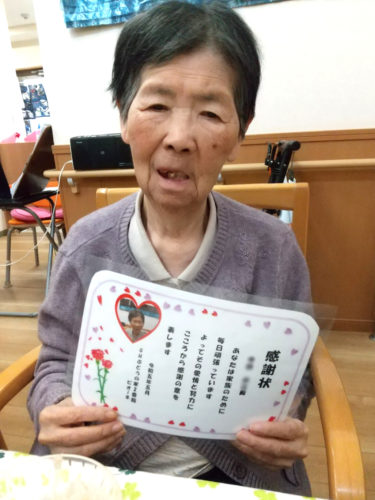 感謝状
あなたは家族のために
毎日頑張っています
よってその愛情と努力に
こころから感謝の意を
表します
令和五年五月